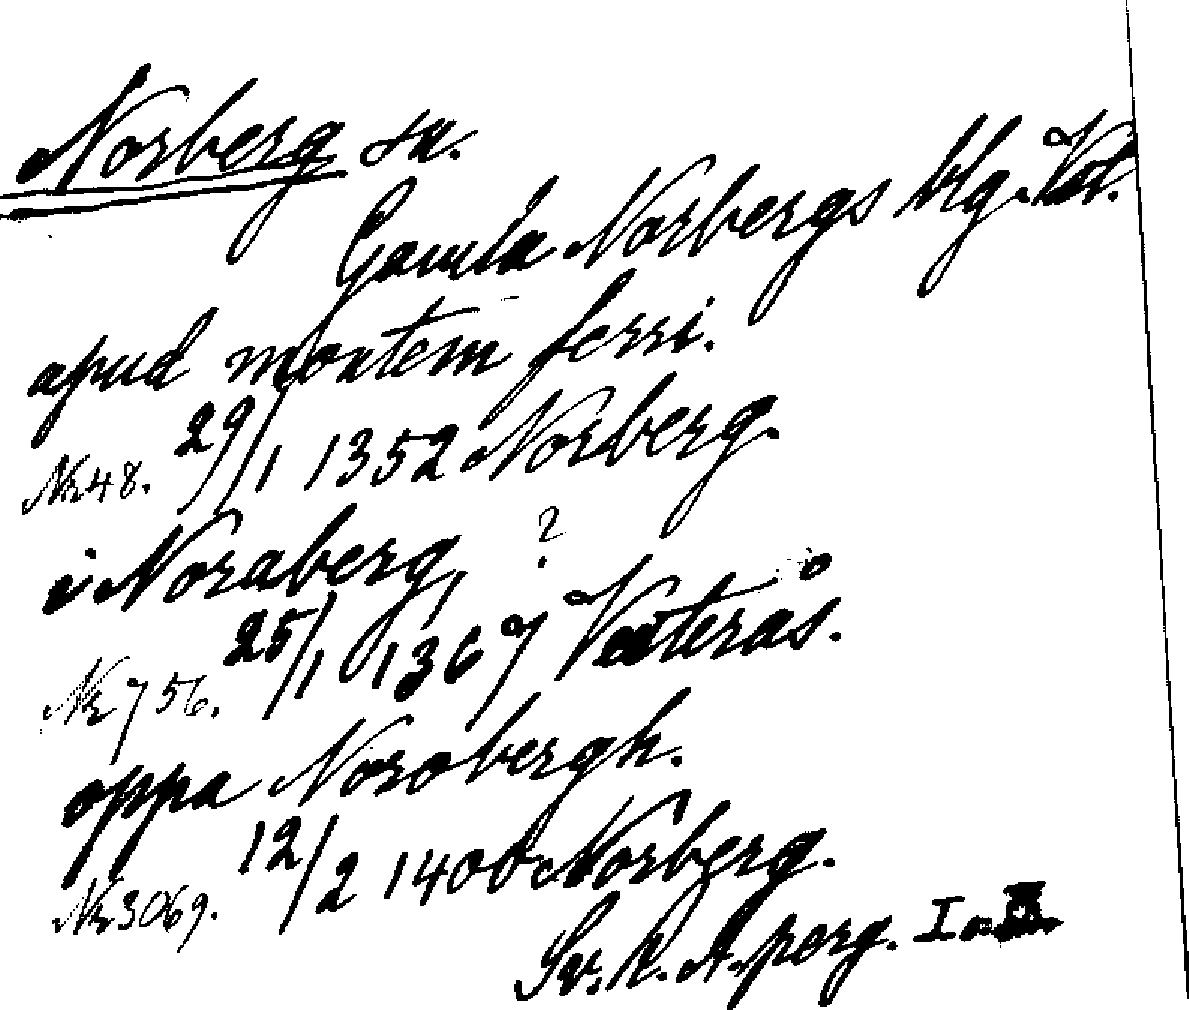 Norberg sn.
Gamla Norbergs blg. Vstm.
apud montem ferri.
Nr 48. 29/1 1352 Norberg.
i Noraberg, ?
Nr 756. 25/1 1367 Västerås.
oppa Norobergh.
Nr 3069. 12/2 1400 Norberg.
Sv. R. A. perg. I